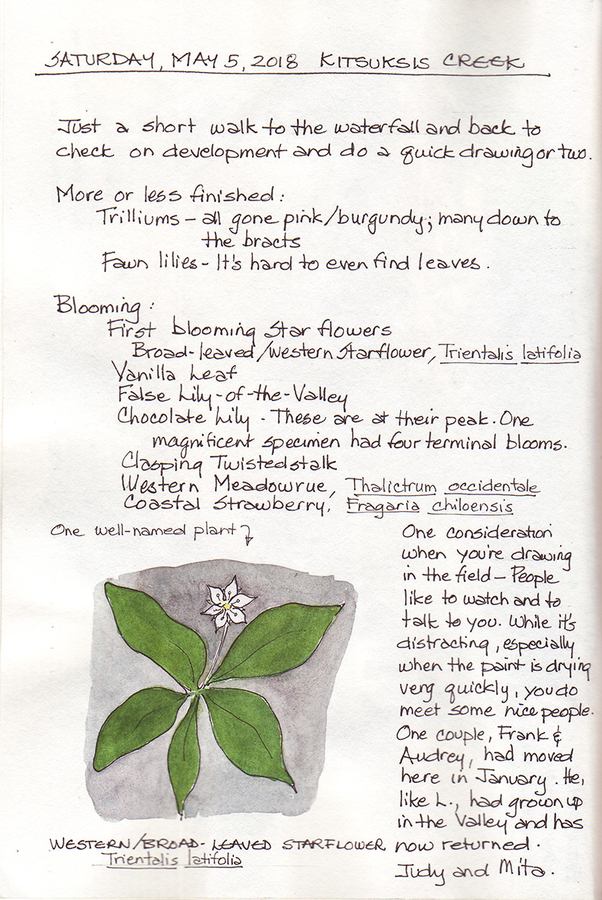 SATURDAY, MAY 5, 2018 KITSUKSIS CREEK
Just a short walk to the waterfall and back to
check on development and do a quick drawing or two.
More or less finished:
Trilliums – all gone pink/burgundy; many down to
the bracts
Fawn lilies – It's hard to even find leaves.
Blooming:
First blooming Star flowers
Broad-leaved/Western Starflower, Trientalis latifolia
Vanilla Leaf
False Lily-of-the-Valley
Chocolate Lily - These are at their peak. One
magnificent specimen had four terminal blooms.
Clasping Twistedstalk
Western Meadowrue, Thalictrum occidentale
Coastal Strawberry, Fragaria chiloensis
One well-named plant
WESTERN/BROAD-LEAVED STARFLOWER
Trientalis latifolia
One consideration
when you're drawing
in the field – People
like to watch and to
talk to you. While it's
distracting, especially
when the paint is drying
very quickly, you do
meet some nice people.
One couple, Frank &
Audrey, had moved
here in January. He,
like L., had grown up
in the Valley and has
now returned.
Judy and Mita.